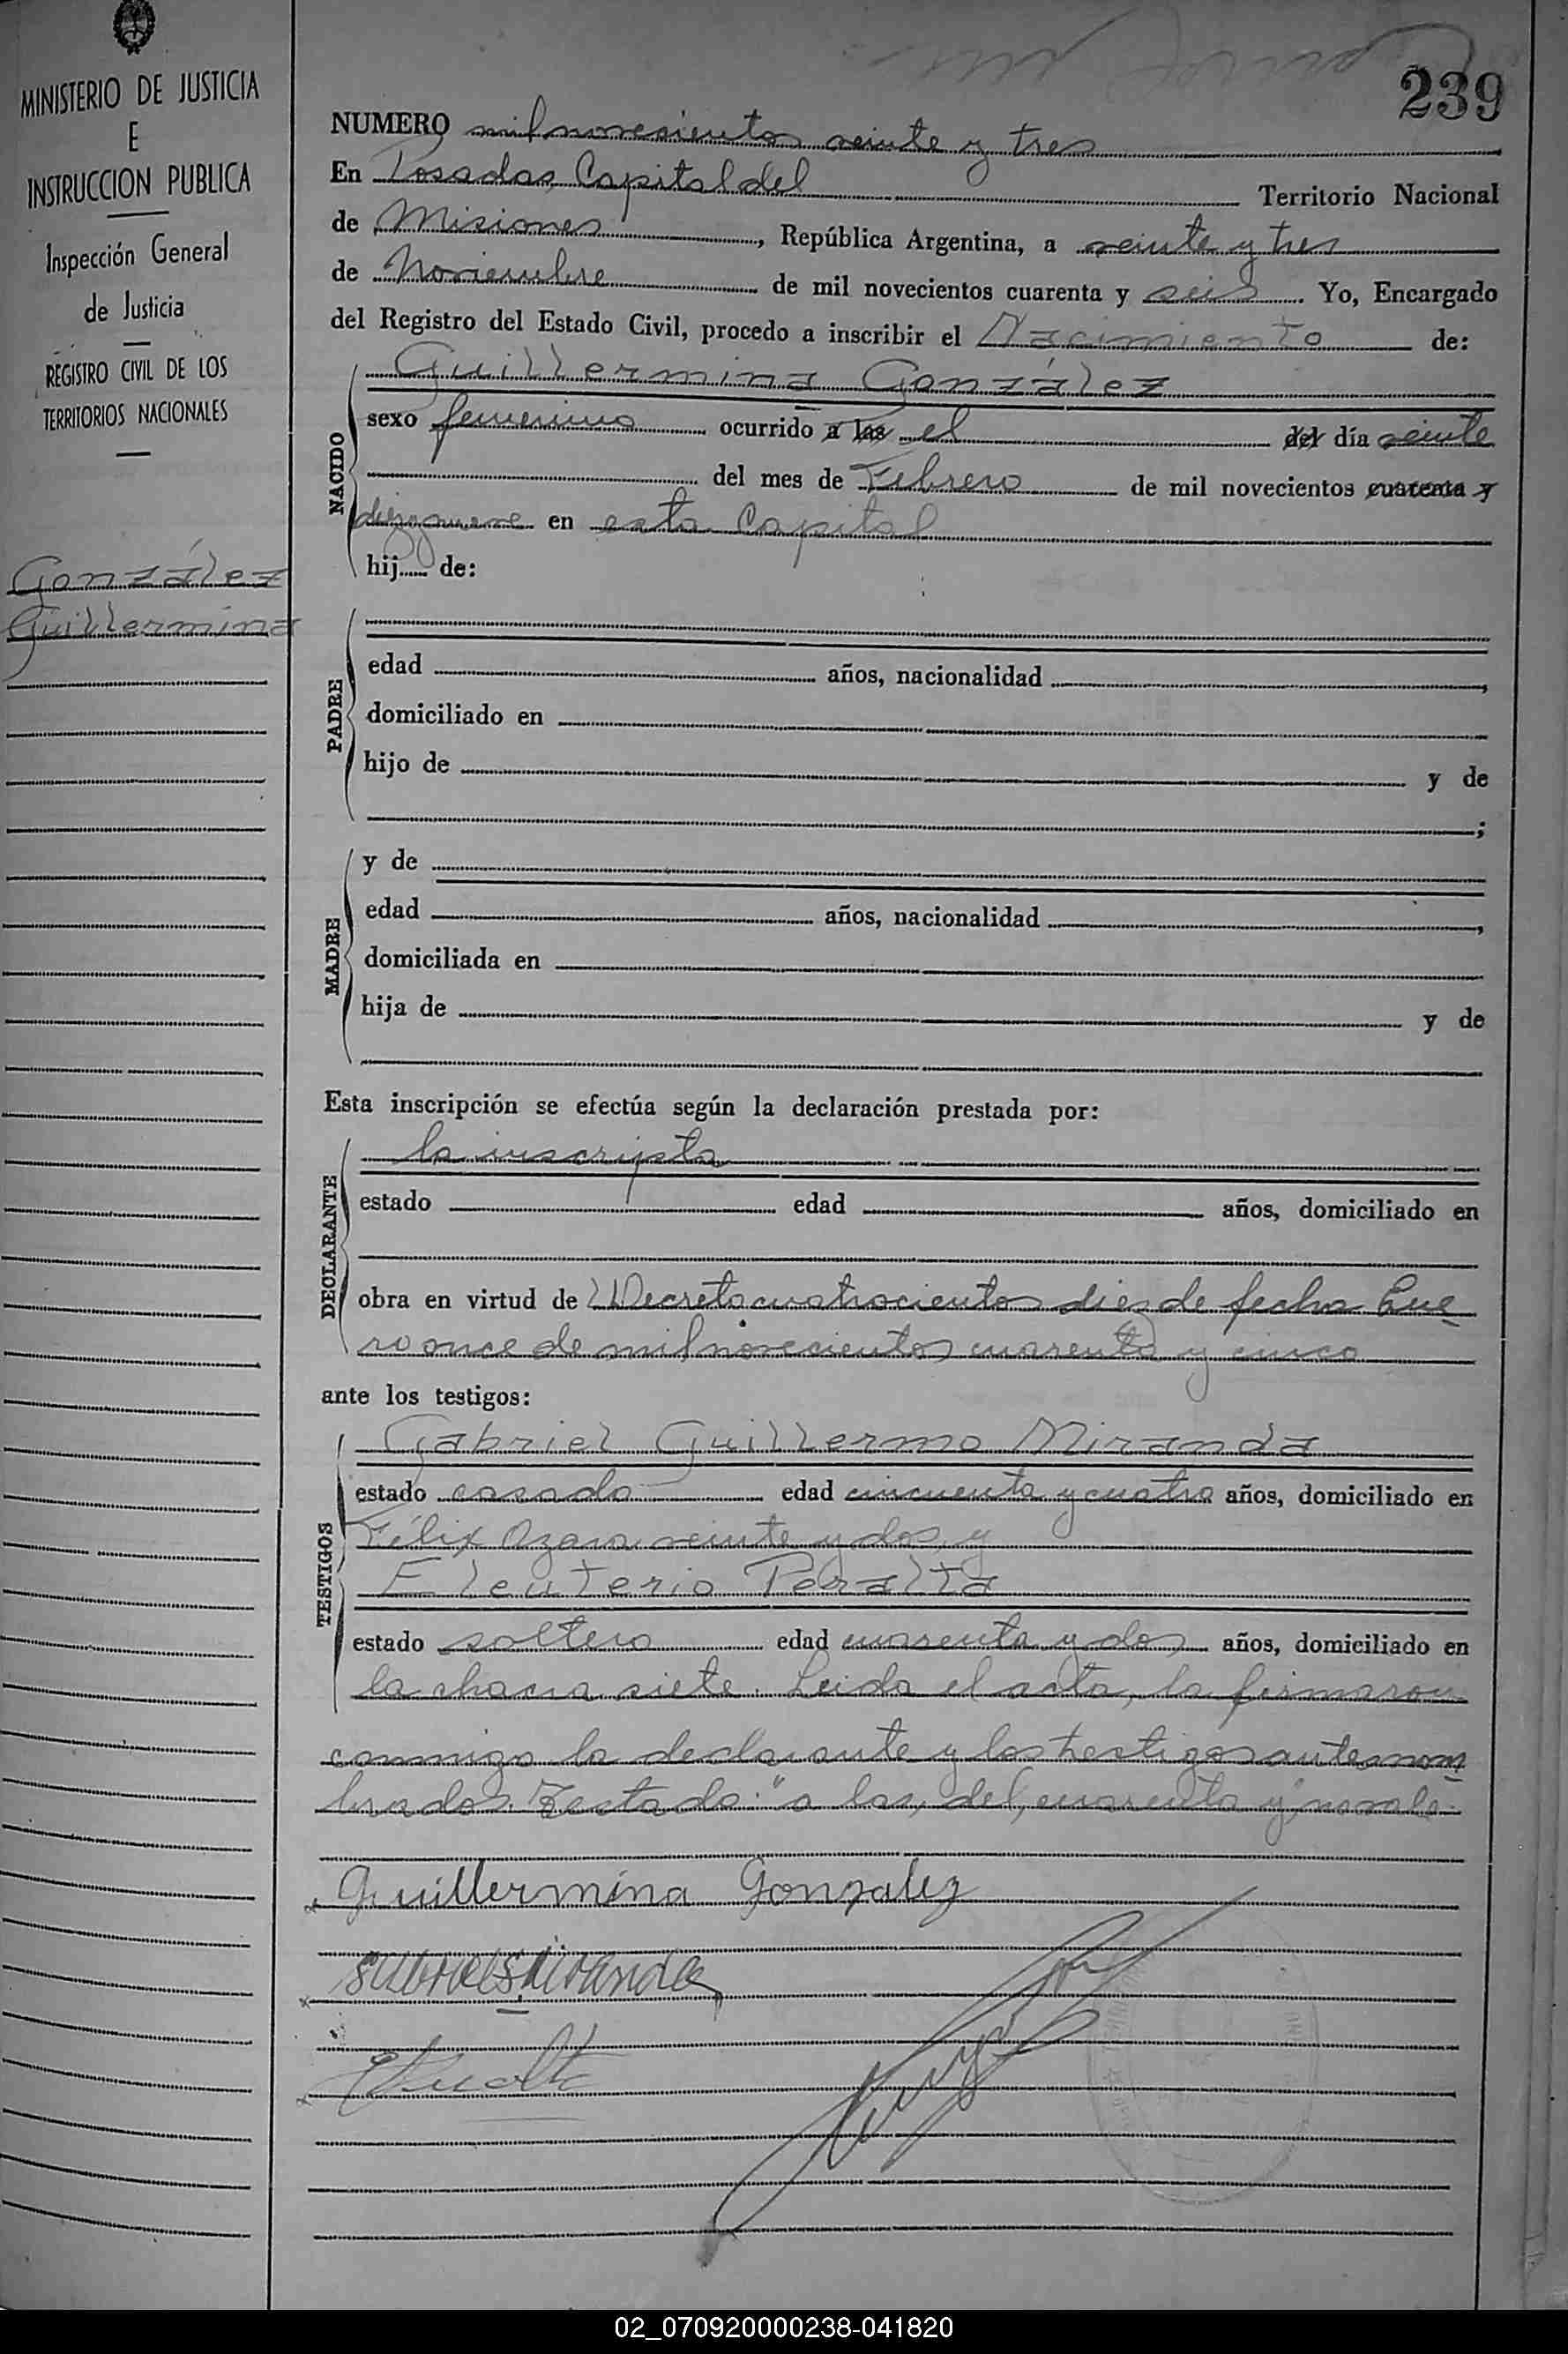 239
MINISTERIO DE JUSTICIA
E
INSTRUCCION PUBLICA
Inspección General
de Justicia
REGISTRO CIVIL DE LOS
TERRITORIOS NACIONALES
González
Guillermina
NUMERO mil novesientos veinte y tres
En Posadas, Capital del Territorio Nacional
de Misiones, República Argentina, a veinte y tres
de Noviembre de mil novecientos cuarenta y seis. Yo, Encargado
del Registro del Estado Civil, procedo a inscribir el Nacimiento de:
NACIDO
Guillermina González
sexo femenino ocurrido a las el del día veinte
del mes de Febrero de mil novecientos cuarenta y
diez y nueve en esta Capital
hij de:
PADRE
edad años, nacionalidad ,
domiciliado en
hijo de y de
;
MADRE
y de
edad años, nacionalidad ,
domiciliada en
hija de y de
Esta inscripción se efectúa según la declaración prestada por:
DECLARANTE
la inscripta
estado edad años, domiciliado en
obra en virtud de Decreto cuatrocientos diez de fecha Ene
ro once de mil novecientos cuarenta y cinco
ante los testigos:
TESTIGOS
Gabriel Guillermo Miranda
estado casado edad cincuenta y cuatro años, domiciliado en
Félix Azara veinte y dos, y
Eleuterio Peralta
estado soltero edad cuarenta y dos años, domiciliado en
la chacra siete. Leida el acta, la firmaron
conmigo la declarante y los testigos antes nom
brados. Testado: "a las, del, cuarenta y" no vale.
Guillermina Gonzalez
Gabriel G. Miranda
02_070920000238-041820